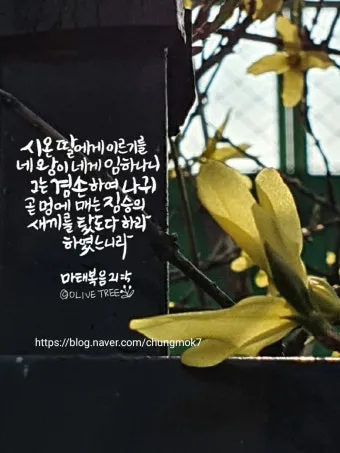 시온 딸에게 이르기를
네 왕이 네게 임하나니
그는 겸손하여 나귀
곧 멍에 메는 짐승의
새끼를 탔도다 하라
하였느니라
마태복음 21:5
©OLIVE TREE
https://blog.naver.com/chungmok7